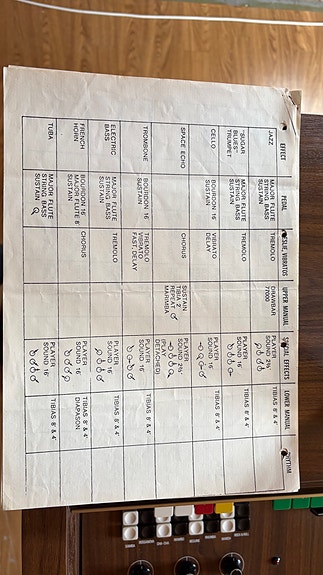 EFFECT
PEDAL
LESLIE, VIBRATOS
UPPER MANUAL
SPECIAL EFFECTS
LOWER MANUAL
RHYTHM
JAZZ
MAJOR FLUTE
STRING BASS
SUSTAIN
TREMOLO
DRAWBAR
77000
PLAYER
SOUND 2⅔'
TIBIAS 8' & 4'
"SUGAR
BLUES"
TRUMPET
MAJOR FLUTE
STRING BASS
SUSTAIN
TREMOLO
PLAYER
SOUND 16'
TIBIAS 8' & 4'
CELLO
BOURDON 16'
SUSTAIN
VIBRATO
DELAY
PLAYER
SOUND 16'
TIBIAS 8' & 4'
SPACE ECHO
CHORUS
SUSTAIN
TIBIA 2'
REPEAT
MARIMBA
PLAYER
SOUND 2⅔'
(PLAY
DETACHED)
TROMBONE
BOURDON 16'
SUSTAIN
TREMOLO
VIBRATO
FAST, DELAY
PLAYER
SOUND 16'
TIBIAS 8' & 4'
ELECTRIC
BASS
MAJOR FLUTE
STRING BASS
SUSTAIN
TREMOLO
PLAYER
SOUND 16'
TIBIAS 8' & 4'
FRENCH
HORN
BOURDON 16'
MAJOR FLUTE 8'
SUSTAIN
CHORUS
PLAYER
SOUND 16'
TIBIAS 8' & 4'
DIAPASON
TUBA
MAJOR FLUTE
STRING BASS
SUSTAIN
TREMOLO
PLAYER
SOUND 16'
TIBIAS 8' & 4'